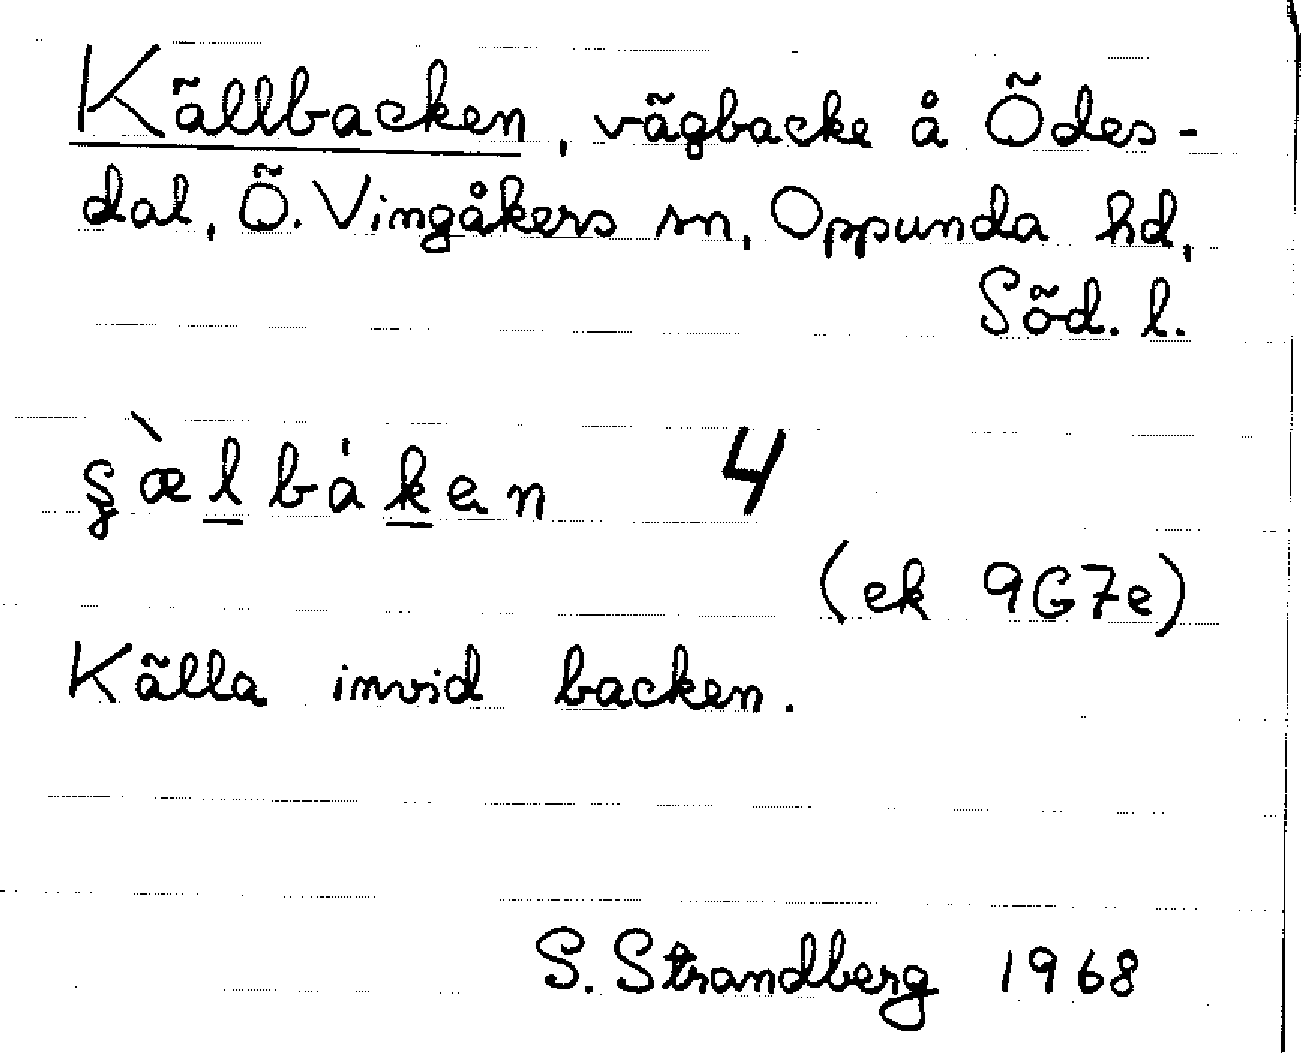 Källbacken, vägbacke å Ödes-
dal, Ö. Vingåkers sn, Oppunda hd,
Söd. l.
4
(ek 9G7e)
Källa invid backen.
S. Strandberg 1968